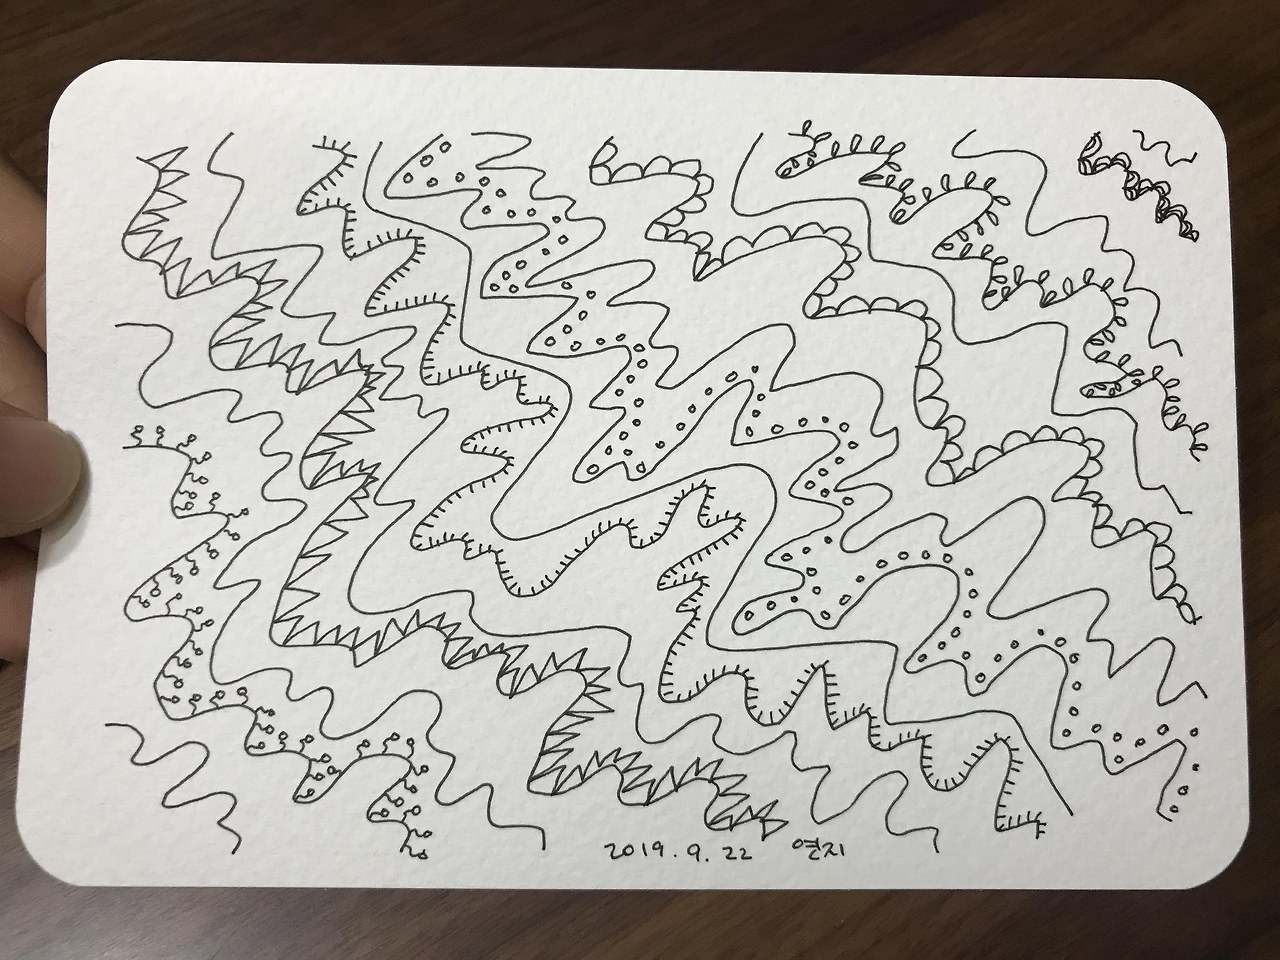 2019.9.22 열지